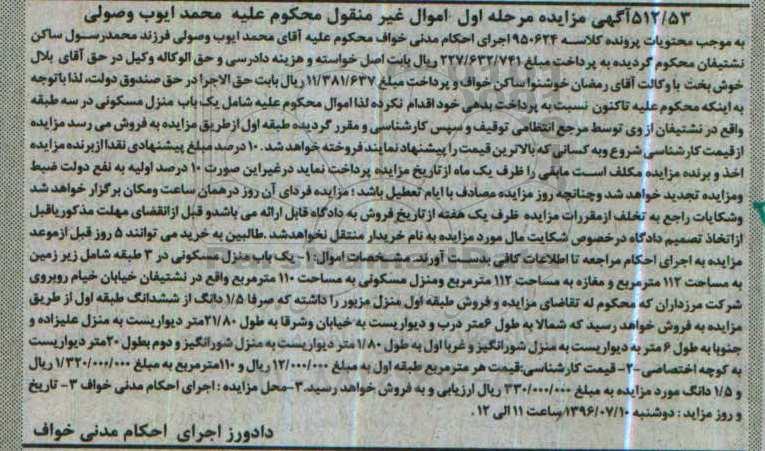 ۵۱۲/۵۳آگهی مزایده مرحله اول اموال غیر منقول محکوم علیه محمد ایوب وصولی
به موجب محتویات پرونده کلاسه ۹۵۰۶۲۴ اجرای احکام مدنی خواف محکوم علیه آقای محمد ایوب وصولی فرزند محمدرسول ساکن
نشتیفان محکوم گردیده به پرداخت مبلغ ۲۲۷/۶۳۲/۷۴۱ ریال بابت اصل خواسته و هزینه دادرسی و حق الوکاله وکیل در حق آقای بلال
خوش بخت با وکالت آقای رمضان خوشنوا ساکن خواف و پرداخت مبلغ ۱۱/۳۸۱/۶۳۷ ریال بابت حق الاجرا در حق صندوق دولت، لذا باتوجه
به اینکه محکوم علیه تاکنون نسبت به پرداخت بدهی خود اقدام نکرده لذا اموال محکوم علیه شامل یک باب منزل مسکونی در سه طبقه
واقع در نشتیفان از وی توسط مرجع انتظامی توقیف و سپس کارشناسی و مقرر گردیده طبقه اول از طریق مزایده به فروش می رسد مزایده
از قیمت کارشناسی شروع وبه کسانی که بالاترین قیمت را پیشنهاد نمایند فروخته خواهد شد. ۱۰ درصد مبلغ پیشنهادی نقدا ازبرنده مزایده
اخذ و برنده مزایده مکلف است مابقی را ظرف یک ماه از تاریخ مزایده پرداخت نماید درغیراین صورت ۱۰ درصد اولیه به نفع دولت ضبط
ومزایده تجدید خواهد شد وچنانچه روز مزایده مصادف با ایام تعطیل باشد ؛ مزایده فردای آن روز درهمان ساعت ومکان برگزار خواهد شد
وشکایات راجع به تخلف ازمقررات مزایده ظرف یک هفته ازتاریخ فروش به دادگاه قابل ارائه می باشدو قبل ازانقضای مهلت مذکوریاقبل
ازاتخاذ تصمیم دادگاه درخصوص شکایت مال مورد مزایده به نام خریدار منتقل نخواهدشد .طالبین به خرید می توانند ۵ روز قبل ازموعد
مزایده به اجرای احکام مراجعه تا اطلاعات کافی بدست آورند. مشخصات اموال: ۱- یک باب منزل مسکونی در ۳ طبقه شامل زیر زمین
به مساحت ۱۱۲ مترمربع و مغازه به مساحت ۱۱۲ مترمربع ومنزل مسکونی به مساحت ۱۱۰ مترمربع واقع در نشتیفان خیابان خیام روبروی
شرکت مرزداران که محکوم له تقاضای مزایده و فروش طبقه اول منزل مزبور را داشته که صرفا ۱/۵ دانگ از ششدانگ طبقه اول از طریق
مزایده به فروش خواهد رسید که شمالا به طول ۶متر درب و دیواریست به خیابان وشرقا به طول ۲۱/۸۰متر دیواریست به منزل علیزاده و
جنوبا به طول ۶ متر به دیواریست به منزل شورانگیز و غربا اول به طول ۱/۸۰ متر دیواریست به منزل شورانگیز و دوم بطول ۲۰متر دیواریست
به کوچه اختصاصی -۲- قیمت کارشناسی:قیمت هر مترمربع طبقه اول به مبلغ ۱۲/۰۰۰/۰۰۰ ریال و ۱۱۰مترمربع به مبلغ ۱/۳۲۰/۰۰۰/۰۰۰ ریال
و ۱/۵ دانگ مورد مزایده به مبلغ ۳۳۰/۰۰۰/۰۰۰ ریال ارزیابی و به فروش خواهد رسید.۳-محل مزایده : اجرای احکام مدنی خواف ۳- تاریخ
و روز مزاید : دوشنبه ۱۳۹۶/۰۷/۱۰ ساعت ۱۱ الی ۱۲ .
دادورز اجرای احکام مدنی خواف